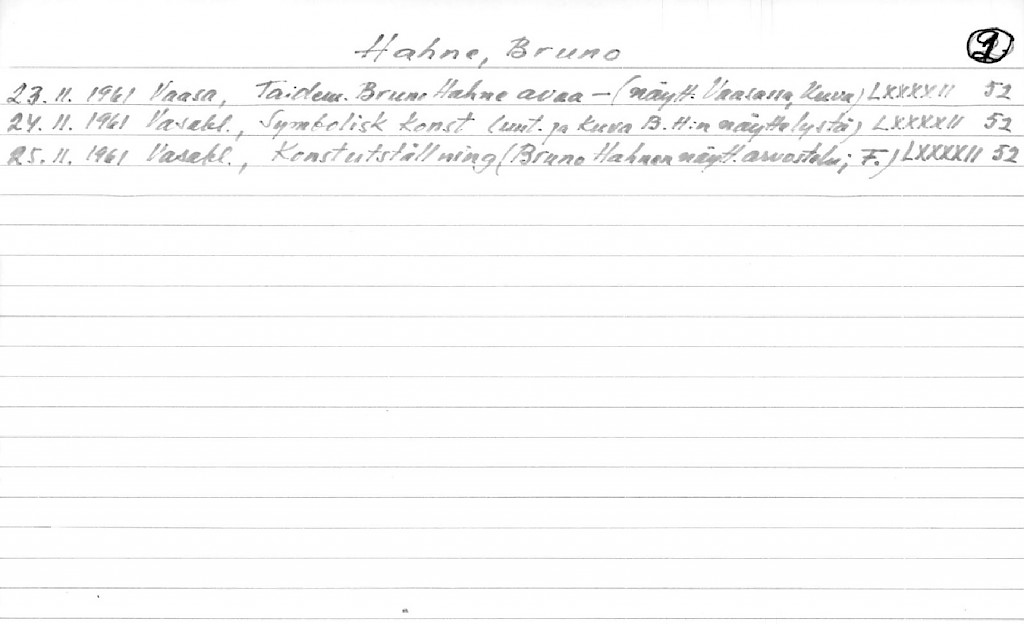 Hahne, Bruno
1
23.11.1961 Vaasa, Taidem. Bruno Hahne avaa - (näytt. Vaasassa, kuva) LXXXXII 52
24.11.1961 Vasabl., Symbolisk konst (uut. ja kuva B.H:n näyttelystä) LXXXXII 52
25.11.1961 Vasabl., Konstutställning (Bruno Hahnen näytt. arvostelu; F.) LXXXXII 52